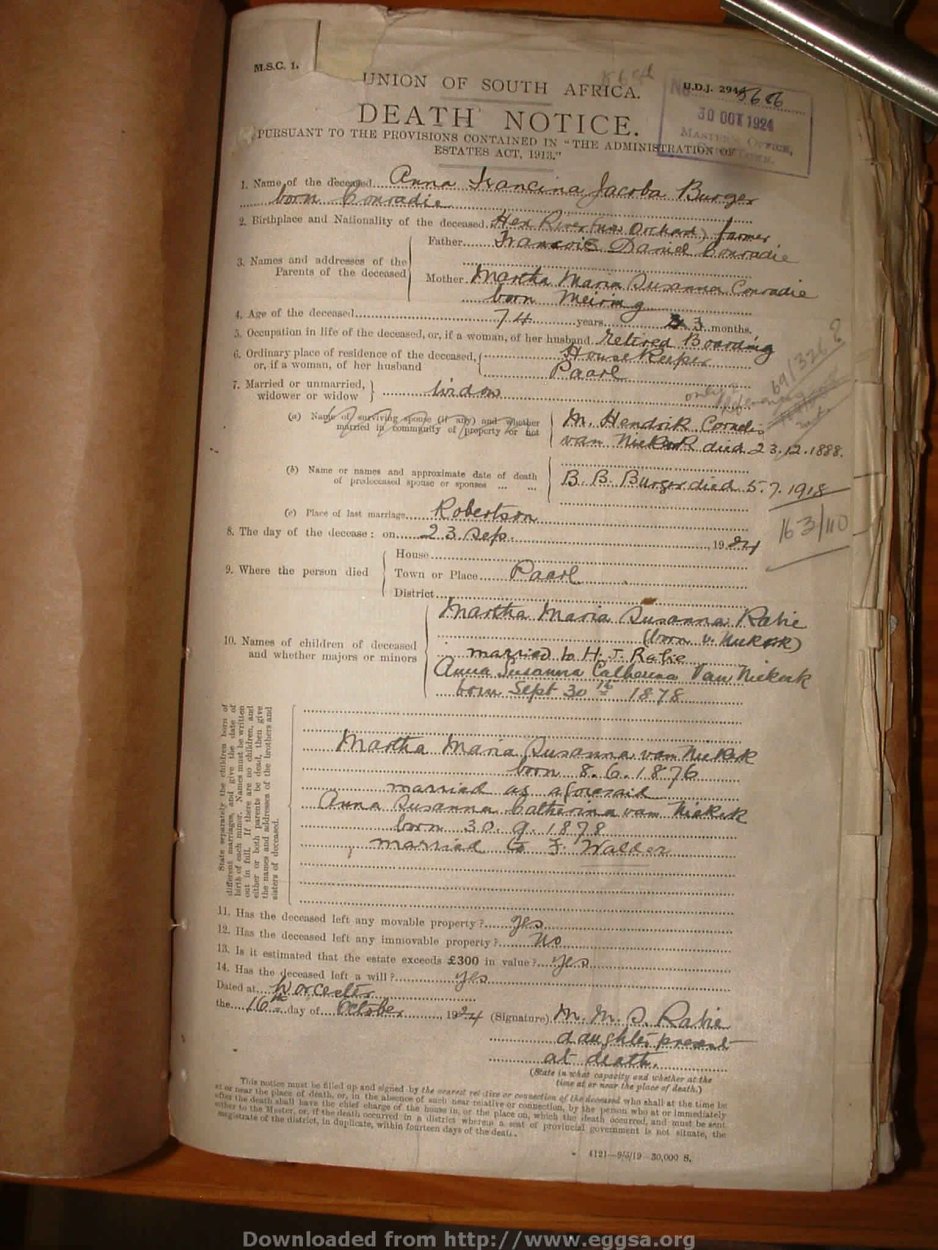 M.S.C. 1.
UNION OF SOUTH AFRICA.
U.D.J. 294
5606
30 OCT 1924
MASTER'S OFFICE,
DEATH NOTICE.
PURSUANT TO THE PROVISIONS CONTAINED IN "THE ADMINISTRATION OF
ESTATES ACT, 1913."
1. Name of the deceased Anna Francina Jacoba Burger
born Conradie
2. Birthplace and Nationality of the deceased. Hex River (nr Orchard) farmer
3. Names and addresses of the Parents of the deceased
Father Francois Daniel Conradie
Mother Martha Maria Susanna Conradie
born Meiring
4. Age of the deceased 74 years 3 months.
5. Occupation in life of the deceased, or, if a woman, of her husband Retired Boarding
House Keeper
6. Ordinary place of residence of the deceased, or, if a woman, of her husband
Paarl
7. Married or unmarried, widower or widow } widow
(a) Name of surviving spouse (if any) and whether
married in community of property or not
M. Hendrik Cornelis
van Niekerk died 23.12.1888.
(b) Name or names and approximate date of death
of predeceased spouse or spouses
B. B. Burger died 5.7.1918
(c) Place of last marriage Robertson
163/110
8. The day of the decease: on 23 Sep. 1924
9. Where the person died
House
Town or Place Paarl
District
10. Names of children of deceased
and whether majors or minors
Martha Maria Susanna Rabie
(born v. Niekerk)
married to H. J. Rabie
Anna Susanna Catherina Van Niekerk
born Sept 30th 1878
State separately the children born of
different marriages, and give the date of
birth of each minor. Names must be written
out in full. If there are no children, and
either or both parents be dead, then give
the names and addresses of the brothers and
sisters of deceased.
Martha Maria Susanna van Niekerk
born 8.6.1876
married as aforesaid
Anna Susanna Catherina van Niekerk
born 30.9.1878
married to F. Walder
11. Has the deceased left any movable property? yes
12. Has the deceased left any immovable property? No
13. Is it estimated that the estate exceeds £300 in value? yes
14. Has the deceased left a will? yes
Dated at Worcester
the 16th day of October, 1924 (Signature) M. M. S. Rabie
daughter present
at death.
(State in what capacity and whether at the
time at or near the place of death.)
This notice must be filled up and signed by the nearest relative or connection of the deceased who shall at the time be
at or near the place of death, or, in the absence of such near relative or connection, by the person who at or immediately
after the death shall have the chief charge of the house in, or the place on, which the death occurred, and must be sent
either to the Master, or, if the death occurred in a district wherein a seat of provincial government is not situate, the
magistrate of the district, in duplicate, within fourteen days of the death.
4121—9/5/19—30,000 S.
Downloaded from http://www.eggsa.org